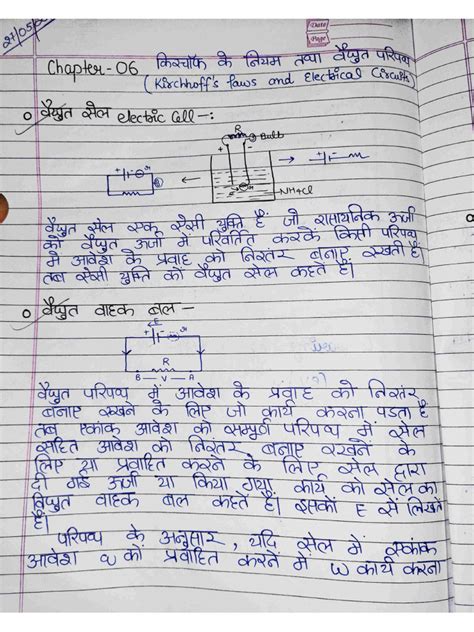 27/05/
Date
Page
Chapter-06 किरचॉफ के नियम तथा वैद्युत परिपथ
(Kirchhoff's laws and Electrical Circuits)
वैद्युत सेल electric Cell -:
R
Bulb
+ -
NH4Cl
वैद्युत सेल एक ऐसी युक्ति है जो रासायनिक ऊर्जा
को वैद्युत ऊर्जा में परिवर्तित करके किसी परिपथ
में आवेश के प्रवाह को निरंतर बनाए रखती है।
तब ऐसी युक्ति को वैद्युत सेल कहते हैं।
वैद्युत वाहक बल -
E
R
B — V — A
वैद्युत परिपथ में आवेश के प्रवाह को निरंतर
बनाए रखने के लिए जो कार्य करना पड़ता है
तब एकांक आवेश को सम्पूर्ण परिपथ में सेल
सहित आवेश को निरंतर बनाए रखनें के
लिए या प्रवाहित करने के लिए सेल द्वारा
दी गई ऊर्जा या किया गया कार्य को सेल का
वैद्युत वाहक बल कहते हैं। इसको E से लिखते
हैं।
परिपथ के अनुसार, यदि सेल में एकांक
आवेश को प्रवाहित करनें में W कार्य करना